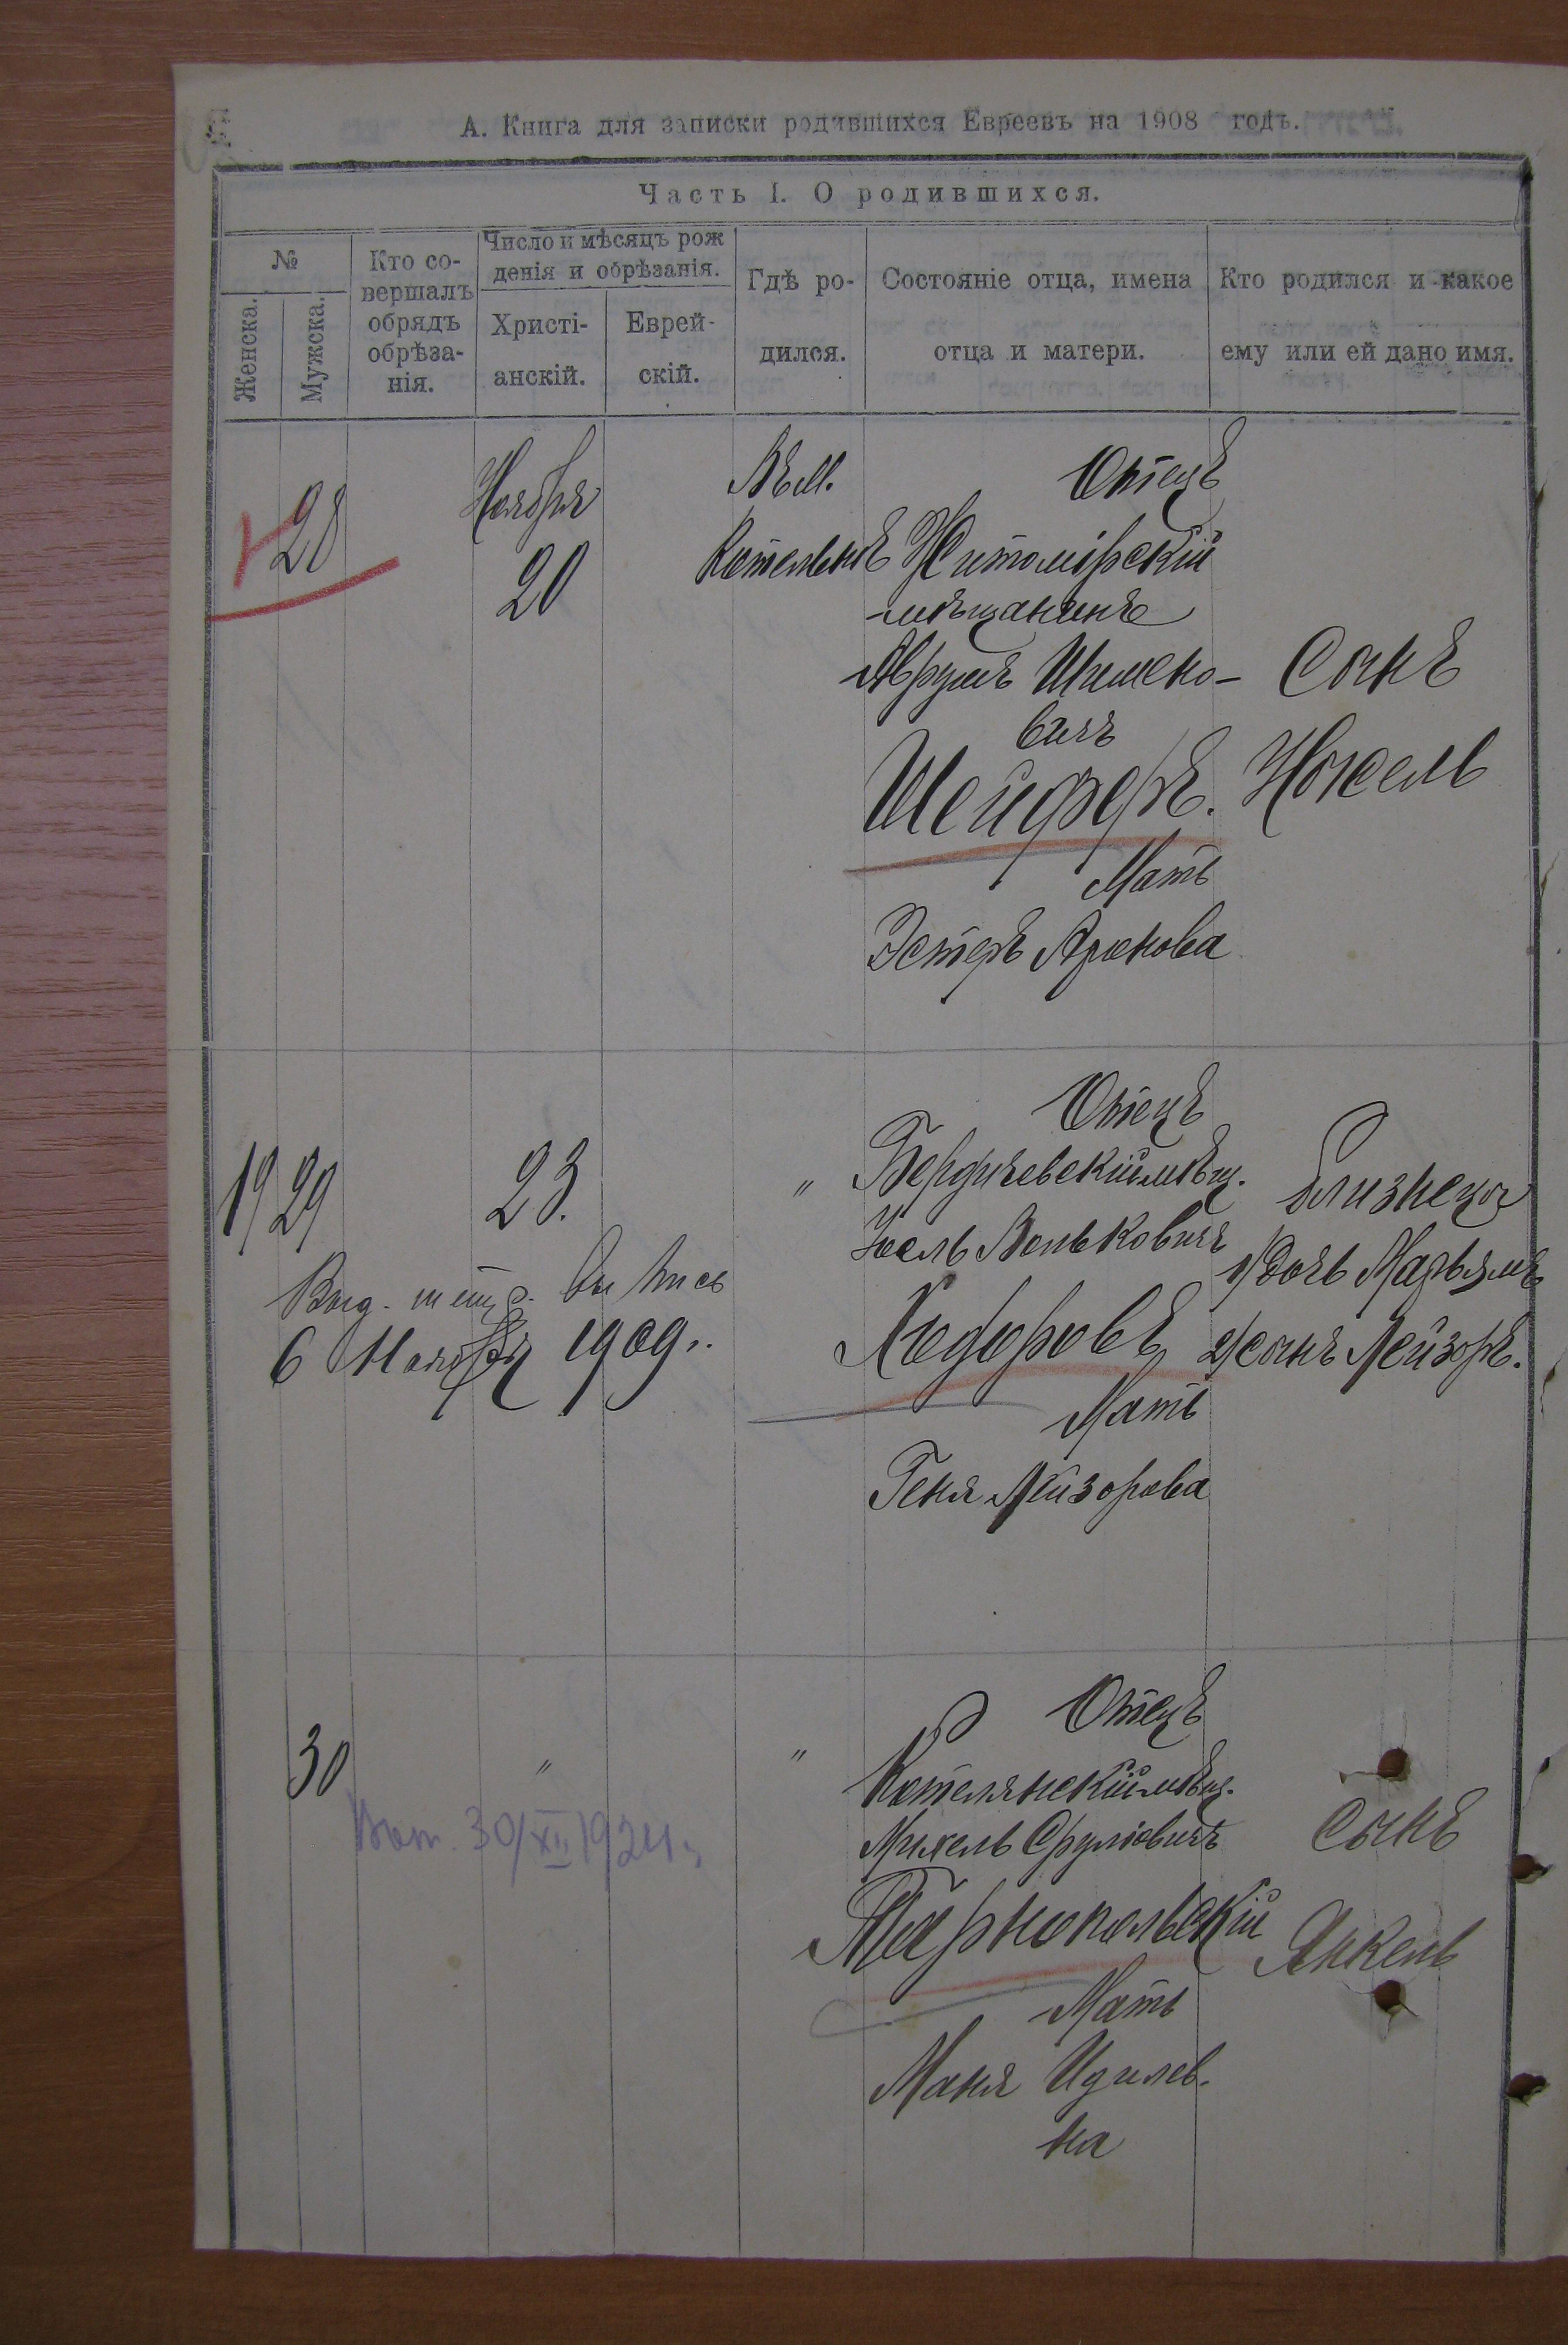 А. Книга для записки родившихся Евреевъ на 1908 годъ.
Часть I. О родившихся.
№
Женска.
Мужска.
Кто со-
вершалъ
обрядъ
обрѣза-
нія.
Число и мѣсяцъ рож
денія и обрѣзанія.
Христі-
анскій.
Еврей-
скій.
Гдѣ ро-
дился.
Состояніе отца, имена
отца и матери.
Кто родился и какое
ему или ей дано имя.
28
Ноября
20
Въ М.
Котельнѣ
Отецъ
Житомірскій
мѣщанинъ
Аврумъ Шимено-
вичъ
Шейферъ.
Мать
Эстеръ Аронова
Сынъ
Іосель
19 29
23.
"
Выд. метр. выпись
6 Ноября 1909 г.
Отецъ
Бердичевскій мѣщ.
Іосль Вольковичъ
Ходоровъ
Мать
Геня Лейзорова
Близнецы
1/ дочь Марьямъ
2/ сынъ Лейзоръ.
30
"
"
30/XII 1924 г.
Отецъ
Котелянскій мѣщ.
Михель Сруліовичъ
Тарнопольскій
Мать
Маня Идилев-
на
Сынъ
Янкель